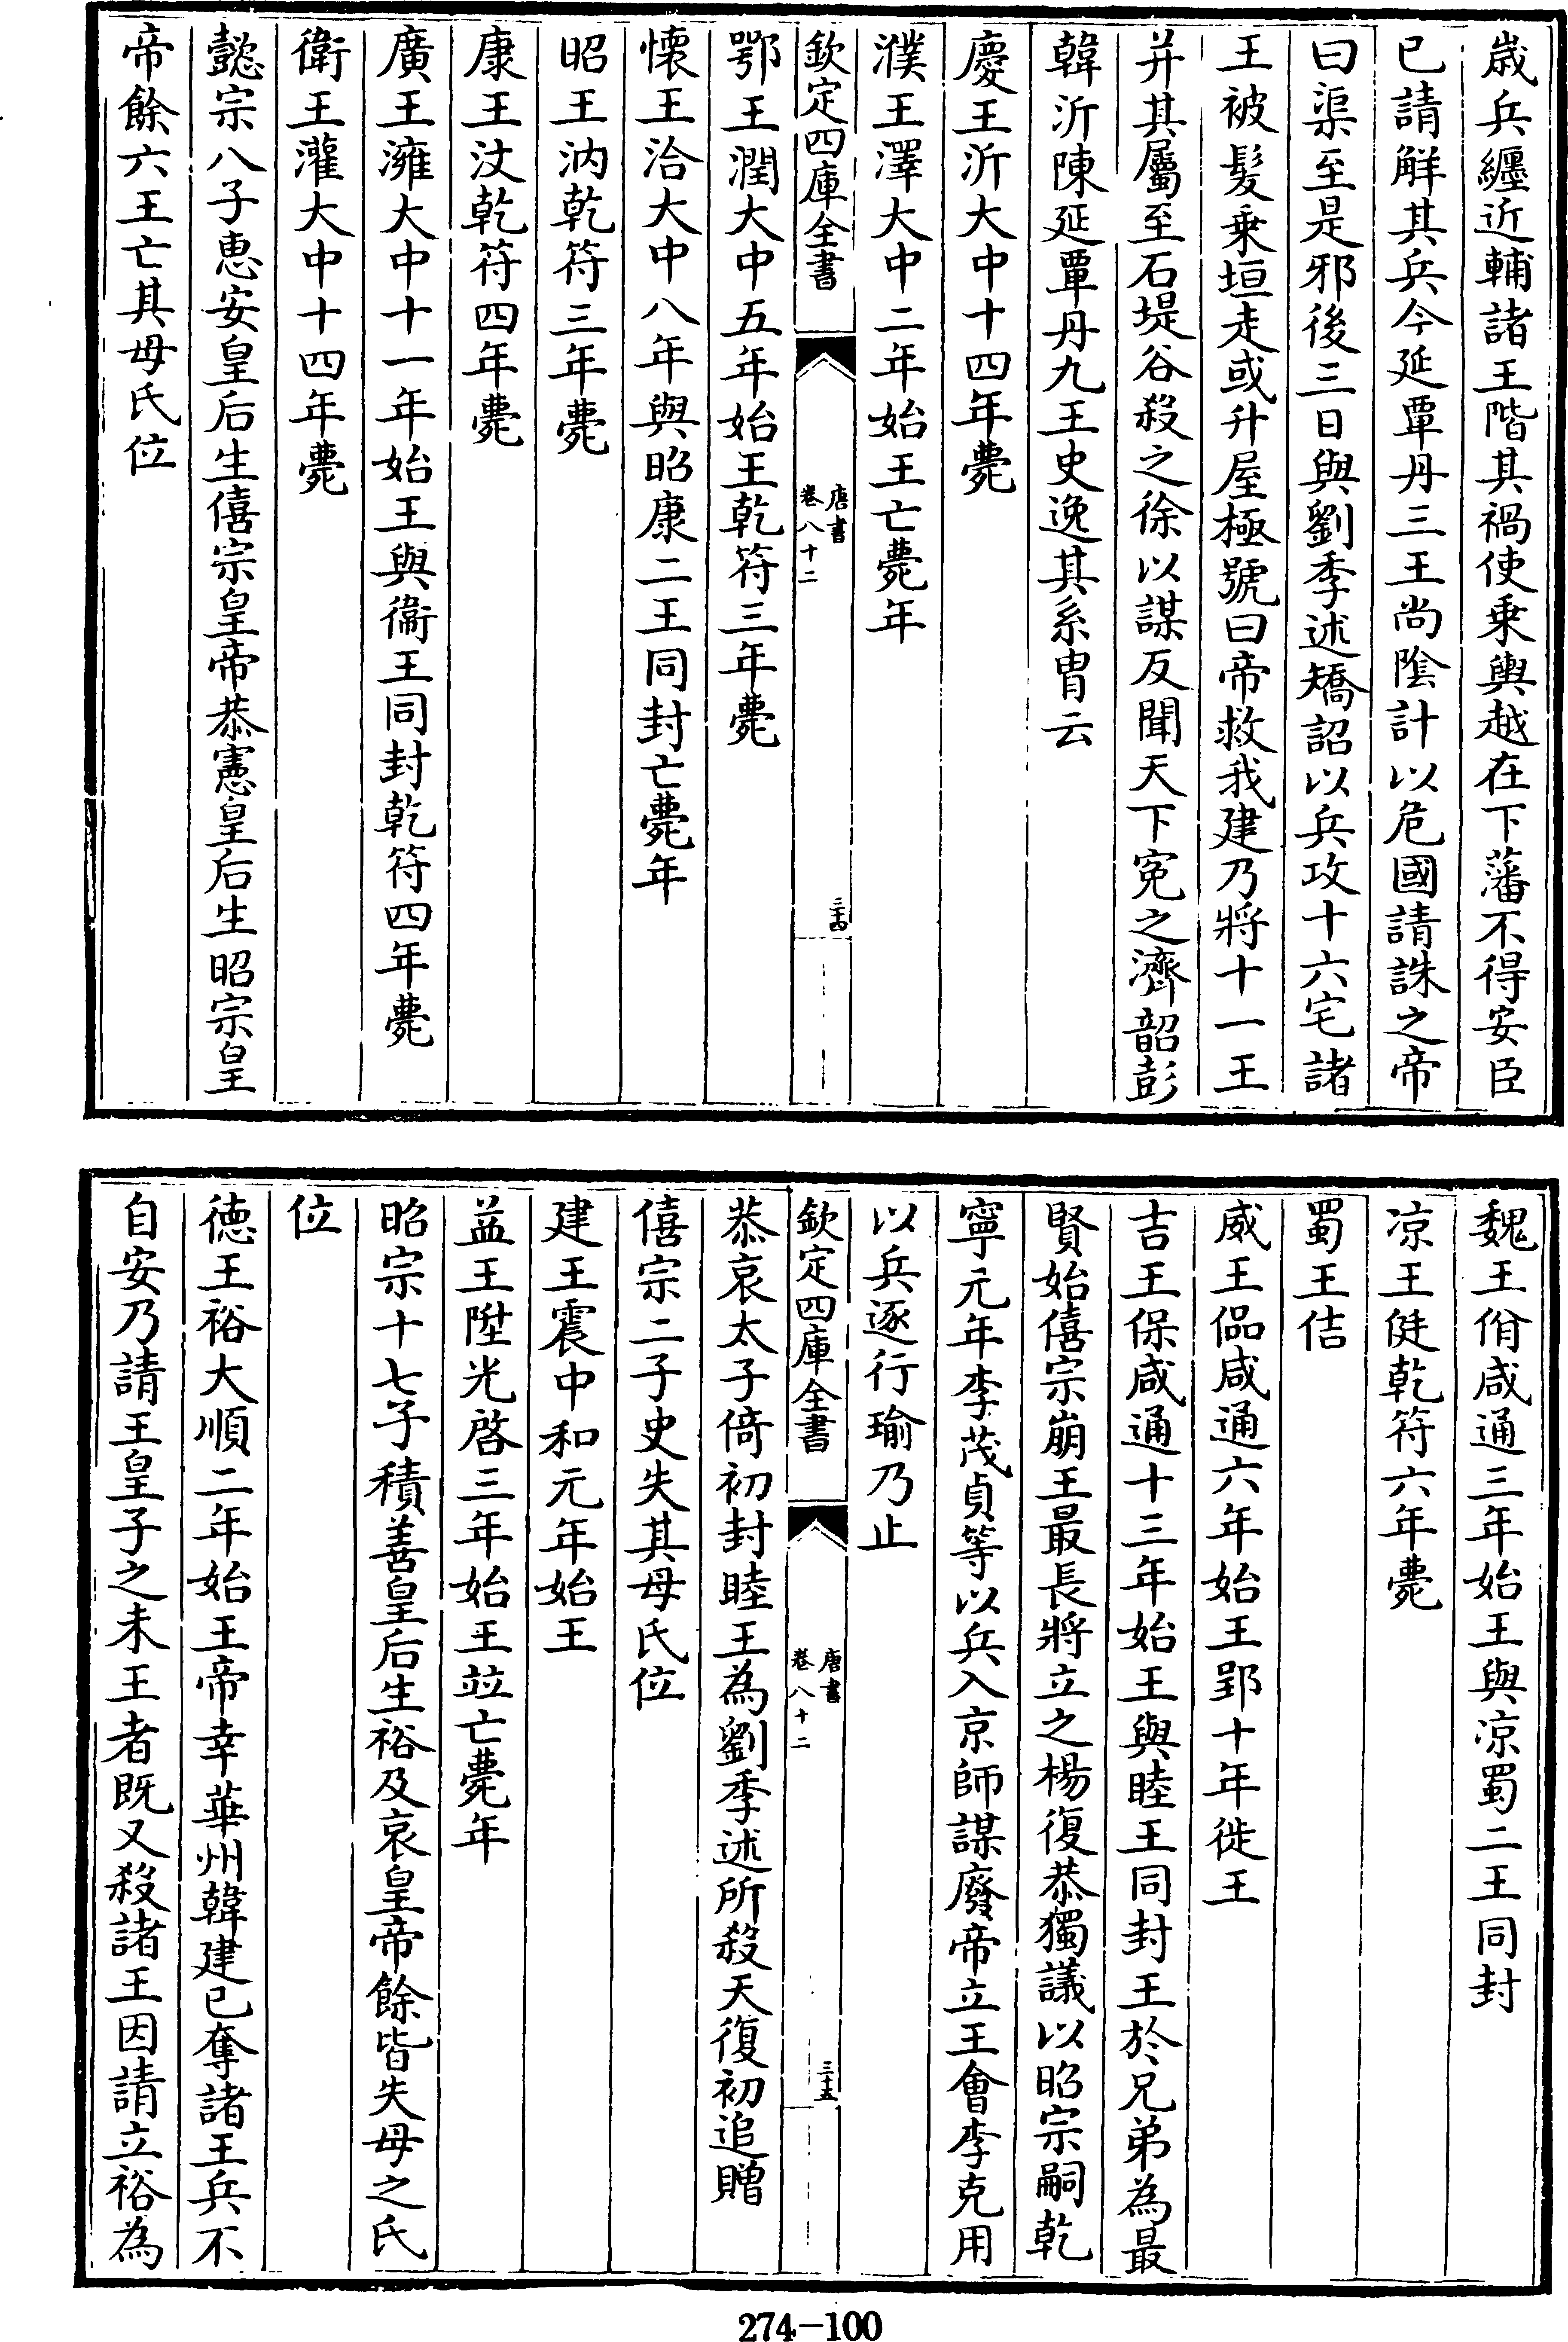 歲兵纏近輔諸王階其禍使乗輿越在下藩不得安臣
已請解其兵今延覃丹三王尚陰計以危國請誅之帝
曰渠至是邪後三日與劉季述矯詔以兵攻十六宅諸
王被髮乗垣走或升屋極號曰帝救我建乃將十一王
并其屬至石堤谷殺之徐以謀反聞天下寃之濟韶彭
韓沂陳延覃丹九王史逸其系胄云
慶王沂大中十四年薨
濮王澤大中二年始王亡薨年
欽定四庫全書
唐書
卷八十二
三十四
鄂王潤大中五年始王乾符三年薨
懷王洽大中八年與昭康二王同封亡薨年
昭王汭乾符三年薨
康王汶乾符四年薨
廣王澭大中十一年始王與衞王同封乾符四年薨
衛王灌大中十四年薨
懿宗八子惠安皇后生僖宗皇帝恭憲皇后生昭宗皇
帝餘六王亡其母氏位
魏王佾咸通三年始王與凉蜀二王同封
凉王侹乾符六年薨
蜀王佶
威王偘咸通六年始王郢十年徙王
吉王保咸通十三年始王與睦王同封王於兄弟為最
賢始僖宗崩王最長將立之楊復恭獨議以昭宗嗣乾
寧元年李茂貞等以兵入京師謀廢帝立王會李克用
以兵逐行瑜乃止
欽定四庫全書
唐書
卷八十二
三十五
恭哀太子倚初封睦王為劉季述所殺天復初追贈
僖宗二子史失其母氏位
建王震中和元年始王
益王陞光啓三年始王竝亡薨年
昭宗十七子積善皇后生裕及哀皇帝餘皆失母之氏
位
德王裕大順二年始王帝幸華州韓建已奪諸王兵不
自安乃請王皇子之未王者既又殺諸王因請立裕為
274-100